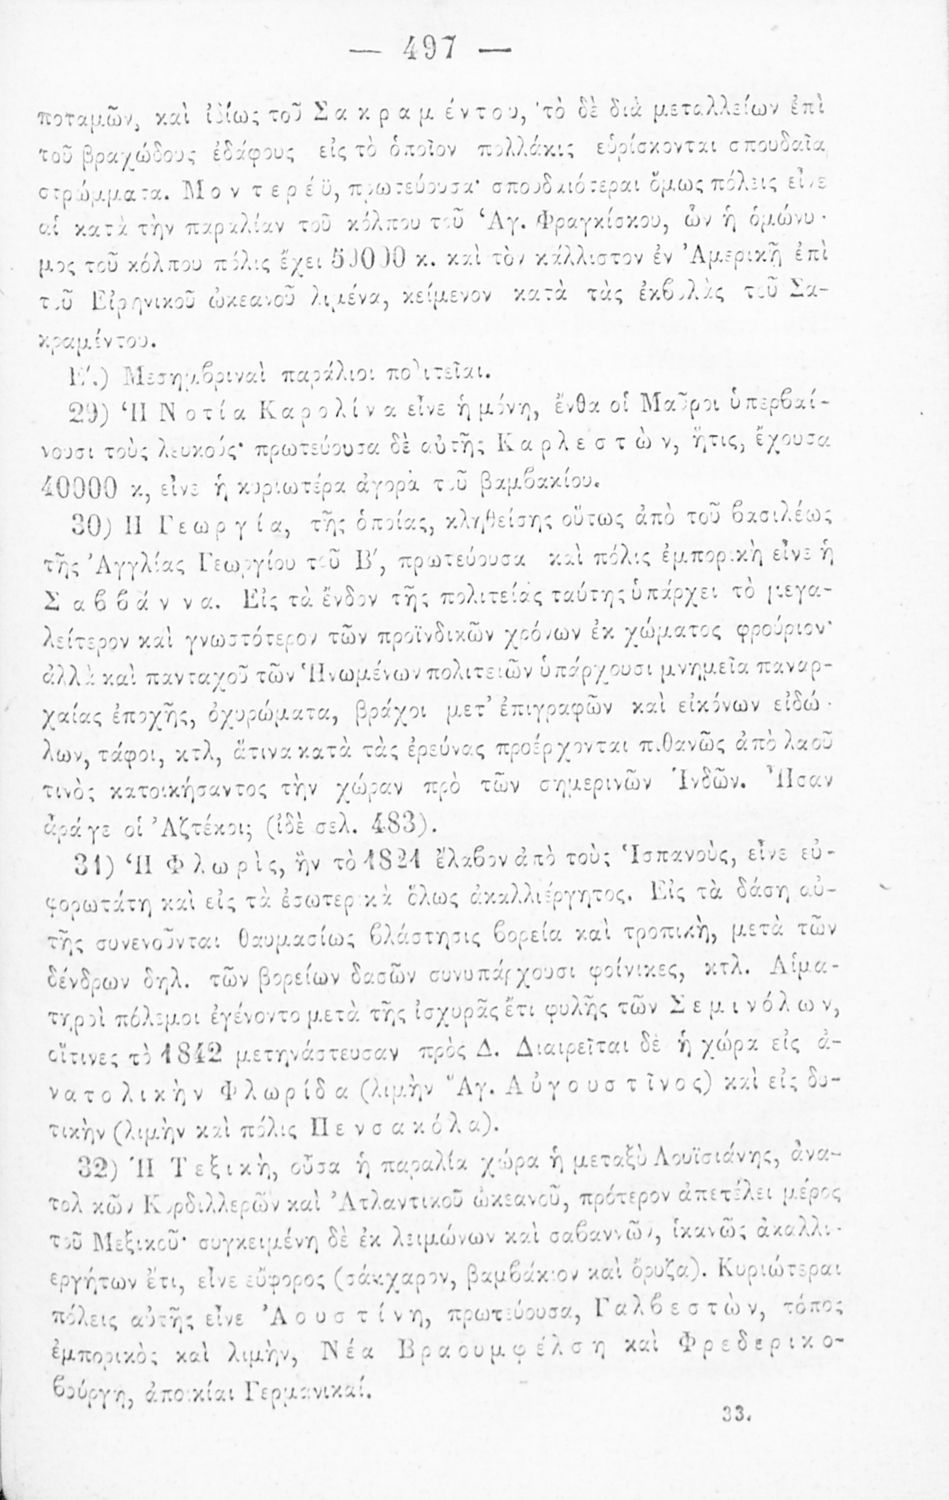 — 497 —
ποταμῶν, καὶ ἰδίως τοῦ Σακραμέντου, τὸ δὲ διὰ μεταλλείων ἐπὶ
τοῦ βραχώδους ἐδάφους εἰς τὸ ὁποῖον πολλάκις εὑρίσκονται σπουδαῖα
στρώμματα. Μοντερέϋ, πρωτεύουσα· σπουδαιότεραι ὅμως πόλεις εἶνε
αἱ κατὰ τὴν παραλίαν τοῦ κόλπου τοῦ Ἁγ. Φραγκίσκου, ὧν ἡ ὁμώνυ-
μος τοῦ κόλπου πόλις ἔχει 50000 κ. καὶ τὸν κάλλιστον ἐν Ἀμερικῇ ἐπὶ
τοῦ Εἰρηνικοῦ ὠκεανοῦ λιμένα, κείμενον κατὰ τὰς ἐκβολὰς τοῦ Σα-
κραμέντου.
Ε΄.) Μεσημβριναὶ παράλιοι πολιτεῖαι.
29) Ἡ Νοτία Καρολίνα εἶνε ἡ μόνη, ἔνθα οἱ Μαῦροι ὑπερβαί-
νουσι τοὺς λευκούς· πρωτεύουσα δὲ αὐτῆς Καρλεστὼν, ἥτις, ἔχουσα
40000 κ, εἶνε ἡ κυριωτέρα ἀγορὰ τοῦ βαμβακίου.
30) Ἡ Γεωργία, τῆς ὁποίας, κληθείσης οὕτως ἀπὸ τοῦ βασιλέως
τῆς Ἀγγλίας Γεωργίου τοῦ Β΄, πρωτεύουσα καὶ πόλις ἐμπορικὴ εἶνε ἡ
Σαββάννα. Εἰς τὰ ἔνδον τῆς πολιτείας ταύτης ὑπάρχει τὸ μεγα-
λείτερον καὶ γνωστότερον τῶν προϊνδικῶν χρόνων ἐκ χώματος φρούριον·
ἀλλὰ καὶ πανταχοῦ τῶν Ἡνωμένων πολιτειῶν ὑπάρχουσι μνημεῖα παναρ-
χαίας ἐποχῆς, ὀχυρώματα, βράχοι μετ' ἐπιγραφῶν καὶ εἰκόνων εἰδώ-
λων, τάφοι, κτλ, ἅτινα κατὰ τὰς ἐρεύνας προέρχονται πιθανῶς ἀπὸ λαοῦ
τινὸς κατοικήσαντος τὴν χώραν πρὸ τῶν σημερινῶν Ἰνδῶν. Ἦσαν
ἆράγε οἱ Ἀζτέκοι; (ἰδὲ σελ. 483).
31) Ἡ Φλωρὶς, ἣν τὸ 1821 ἔλαβον ἀπὸ τοὺς Ἱσπανοὺς, εἶνε εὐ-
φορωτάτη καὶ εἰς τὰ ἐσωτερικὰ ὅλως ἀκαλλιέργητος. Εἰς τὰ δάση αὐ-
τῆς συνενοῦνται θαυμασίως βλάστησις βορεία καὶ τροπικὴ, μετὰ τῶν
δένδρων δηλ. τῶν βορείων δασῶν συνυπάρχουσι φοίνικες, κτλ. Αἱμα-
τηροὶ πόλεμοι ἐγένοντο μετὰ τῆς ἰσχυρᾶς ἔτι φυλῆς τῶν Σεμινόλων,
οἵτινες τὸ 1842 μετηνάστευσαν πρὸς Δ. Διαιρεῖται δὲ ἡ χώρα εἰς ἀ-
νατολικὴν Φλωρίδα (λιμὴν Ἅγ. Αὐγουστῖνος) καὶ εἰς δυ-
τικὴν (λιμὴν καὶ πόλις Πενσακόλα).
32) Ἡ Τεξικὴ, οὖσα ἡ παραλία χώρα ἡ μεταξὺ Λουϊσιάνης, ἀνα-
τολικῶν Κορδιλλερῶν καὶ Ἀτλαντικοῦ ὠκεανοῦ, πρότερον ἀπετέλει μέρος
τοῦ Μεξικοῦ· συγκειμένη δὲ ἐκ λειμώνων καὶ σαβαννῶν, ἱκανῶς ἀκαλλι-
εργήτων ἔτι, εἶνε εὔφορος (σάκχαρον, βαμβάκιον καὶ ὄρυζα). Κυριώτεραι
πόλεις αὐτῆς εἶνε Ἀουστίνη, πρωτεύουσα, Γαλβεστὼν, τόπος
ἐμπορικὸς καὶ λιμὴν, Νέα Βραουμφέλση καὶ Φρεδερικο-
βούργη, ἀποικίαι Γερμανικαί.
33.